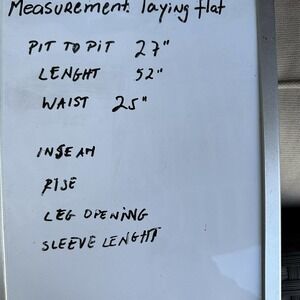 Measurement laying flat
PIT TO PIT 27"
LENGHT 52"
WAIST 25"
INSEAM
RISE
LEG OPENING
SLEEVE LENGHT